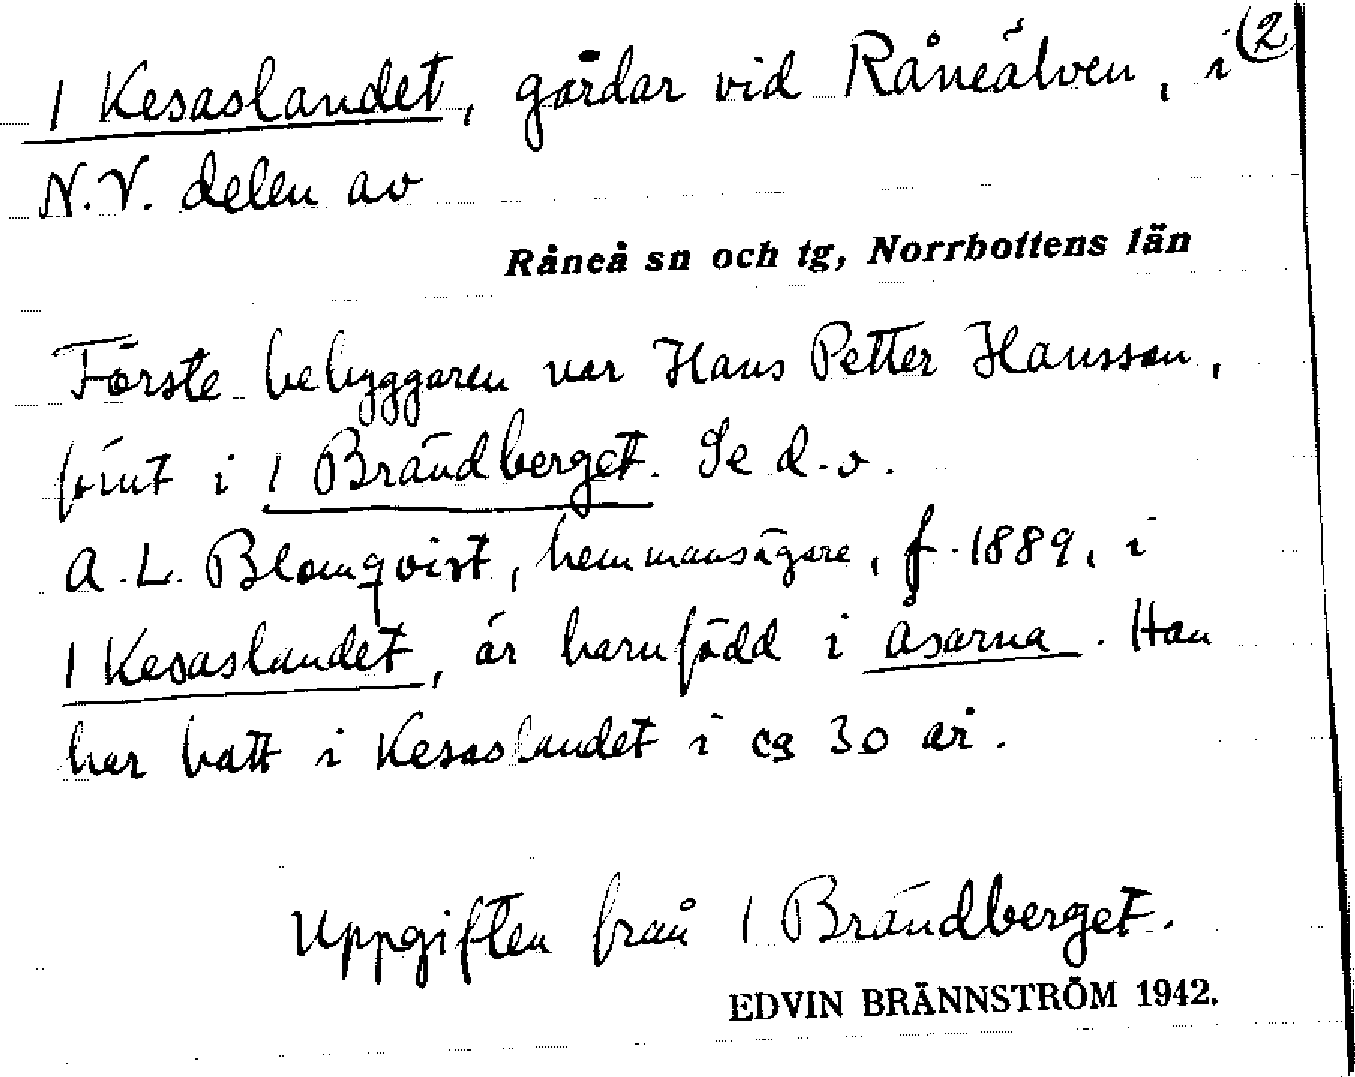 (2
/ Kesaslandet, gårdar vid Råneälven, i
N.V. delen av
Råneå sn och tg, Norrbottens län
Förste bebyggaren var Hans Petter Hansson,
förut i / Brändberget. Se d.o.
A. L. Blomqvist, hemmansägare, f. 1889, i
/ Kesaslandet, är barnfödd i Åsarna. Han
har bott i Kesaslandet i ca 30 år.
Uppgiften från / Brändberget.
EDVIN BRÄNNSTRÖM 1942.